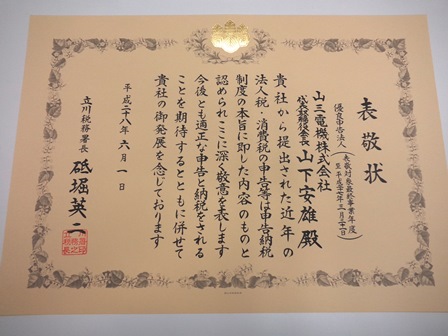 表敬状
優良申告法人（表敬対象最終事業年度
至平成二七年三月三一日）
山三電機株式会社
代表取締役会長 山下安雄殿
貴社から提出された近年の
法人税・消費税の申告等は申告納税
制度の本旨に即した内容のものと
認められここに深く敬意を表します
今後とも適正な申告と納税をされる
ことを期待するとともに併せて
貴社の御発展を念じております
平成二十八年六月一日
立川税務署長
砥堀英二